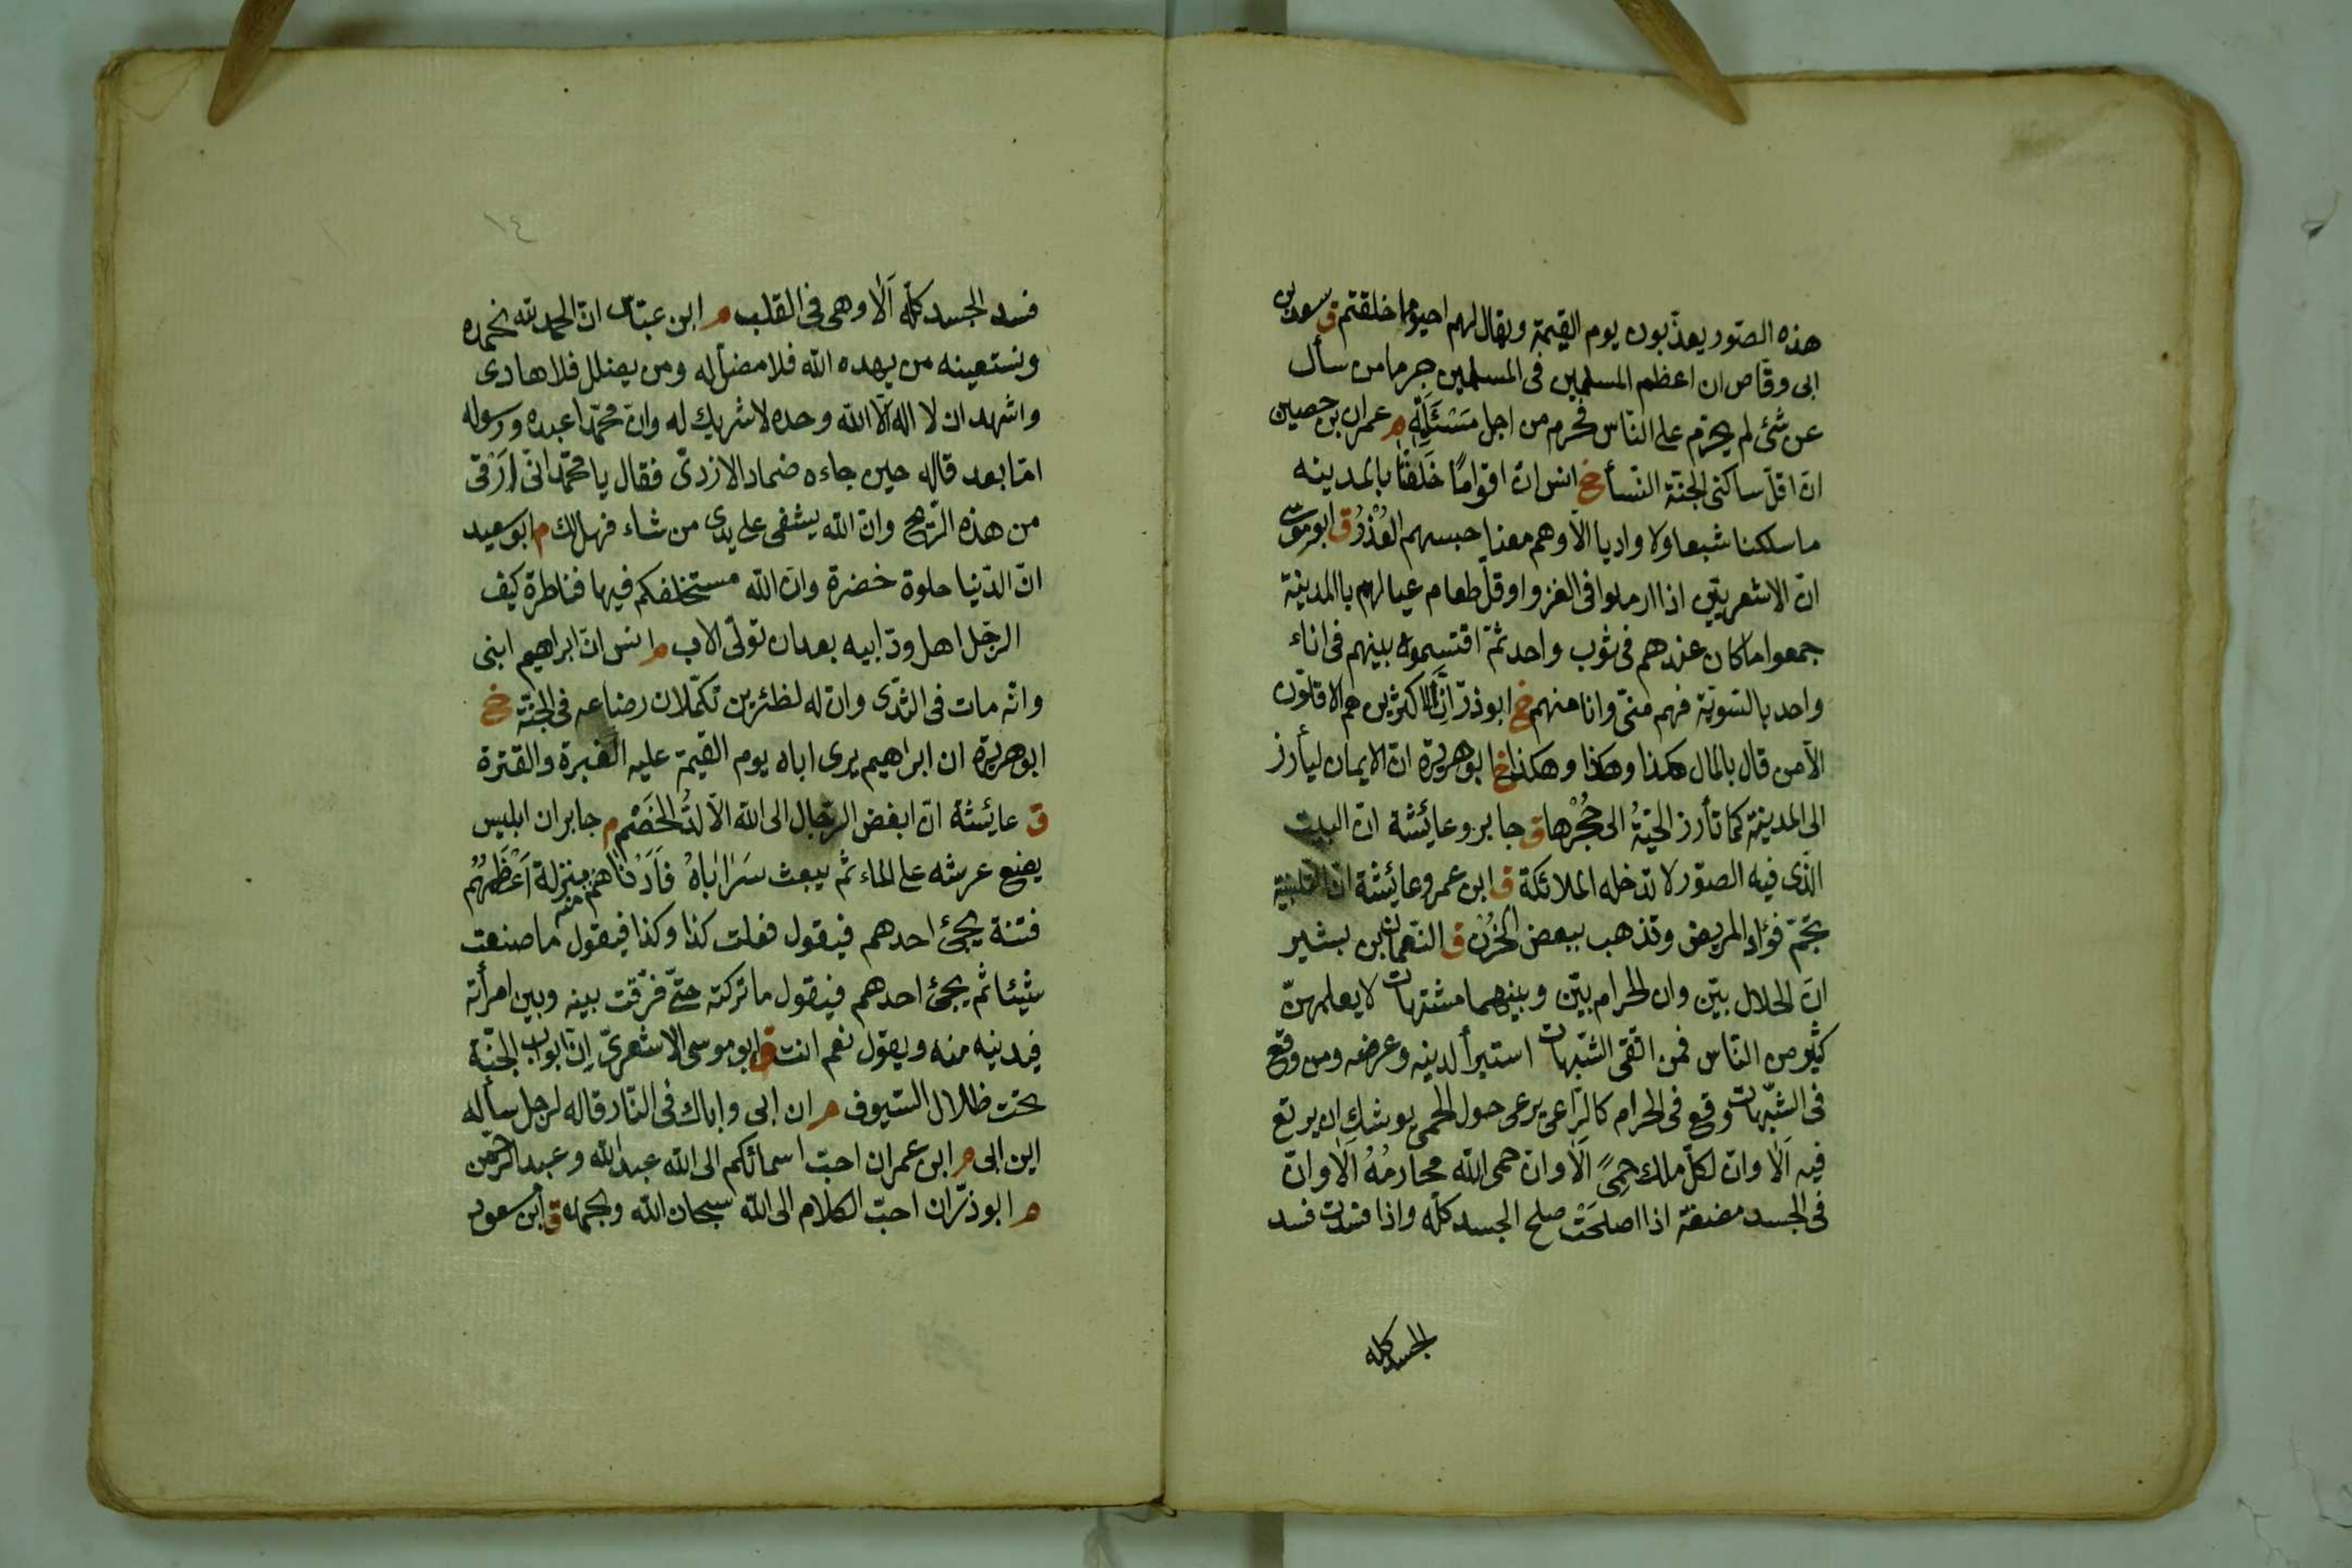 هذه الصّور يعذّبون يوم القيمة ويقال لهم احيوا ما خلقتم ق سعد بن
ابى وقاص ان اعظم المسلمين فى المسلمين جرما من سأل
عن شئ لم يحرّم على النّاس فحرم من اجل مَسْئَلَتِهِ م عمران بن حصين
انّ اقلّ ساكنى الجنّة النّسأ خ انس ان اقوامًا خَلَفْنَا بالمدينه
ما سلكنا شعبا ولا واديا الّا وهم معنا حبسهم العُذْرُ ق ابو موسى
انّ الاشعريّين اذا ارملوا فى الغزو او قلّ طعام عيالهم باالمدينة
جمعوا ما كان عندهم فى ثوب واحد ثمّ اقتسموه بينهم فى اناء
واحد بالسّويّة فهم منّى وانا منهم خ ابو ذرّ انّ الاكثرين هم الاقلّون
الّا من قال بالمال هكذا وهكذا وهكذا خ ابو هريرة انّ الايمان ليأرز
الى المدينة كما تأرز الحيّةُ الى جُحْرِها ق جابر وعائشة ان البيت
الّذى فيه الصّور لا تدخله الملائكة ق ابن عمر وعائشة ان التلبينة
تجمّ فؤاد المريض وتذهب ببعض الحُزْن ق النّعمان بن بشير
انّ الحلال بيّن وان الحرام بيّن وبينهما مشتبهات لا يعلمهنّ
كثير من النّاس فمن اتّقى الشّبهات استبرأ لدينه وعرضه ومن وقع
فى الشّبهات وقع فى الحرام كالرّاعى يرعى حول الحمى يوشك ان يرتع
فيه اَلَا وانّ لكلّ ملك حِمًى اَلَا وانّ حمى الله محارمُهُ اَلَا وانّ
فى الجسد مضغة اذا اصلحَتْ صلح الجسد كلّه واذا فسدت فسد
الجسد كله
١٤
فسد الجسد كلّه اَلَا وهى فى القلب م ابن عبّاس انّ الحمد لله نحمده
ونستعينه من يهده الله فلا مضلّ له ومن يضلل فلا هادى
واشهد ان لا اله الّا الله وحده لا شريك له وانّ محمّدا عبده ورسوله
امّا بعد قاله حين جاءه ضماد الازدىّ فقال يا محمّد انّى اَرْقى
من هذه الرّيح وانّ الله يشفى على يدى من شاء فهل لك م ابو سعيد
انّ الدّنيا حلوة خضرة وانّ الله مستخلفكم فيها فناظرة كيف
الرجّل اهل ودّ ابيه بعد ان تولّى الاب م انس انّ ابراهيم ابنى
وانّه مات فى الثدّى وانّ له لظئرين تكمّلان رضاعه فى الجنّة خ
ابو هريرة ان ابراهيم يرى اباه يوم القيمة عليه الغبرة والقترة
ق عائشة انّ ابغض الرّجال الى الله الالدُّ الخَصْم م جابر ان ابليس
يضع عرشه على الماء ثم يبعث سَرَايَاهُ فاَدْنَاهُمْ منه منزلة اَعْظَمُهُم
فتنة يجئ احدهم فيقول فعلت كذا وكذا فيقول ما صنعت
شيئا ثم يجئ احدهم فيقول ما تركته حتّى فرّقت بينه وبين امرأته
فيدنيه منه ويقول نعم انت ق ابو موسى الاشعرىّ اِنّ ابواب الجنّة
تحت ظلال السّيوف م ان ابى واباك فى النّار قاله لرجل سأله
اين ابى م ابن عمر ان احبّ اسمائكم الى الله عبد الله وعبد الرحمّن
م ابو ذرّ ان احبّ الكلام الى الله سبحان الله وبحمده ق ابن مسعود